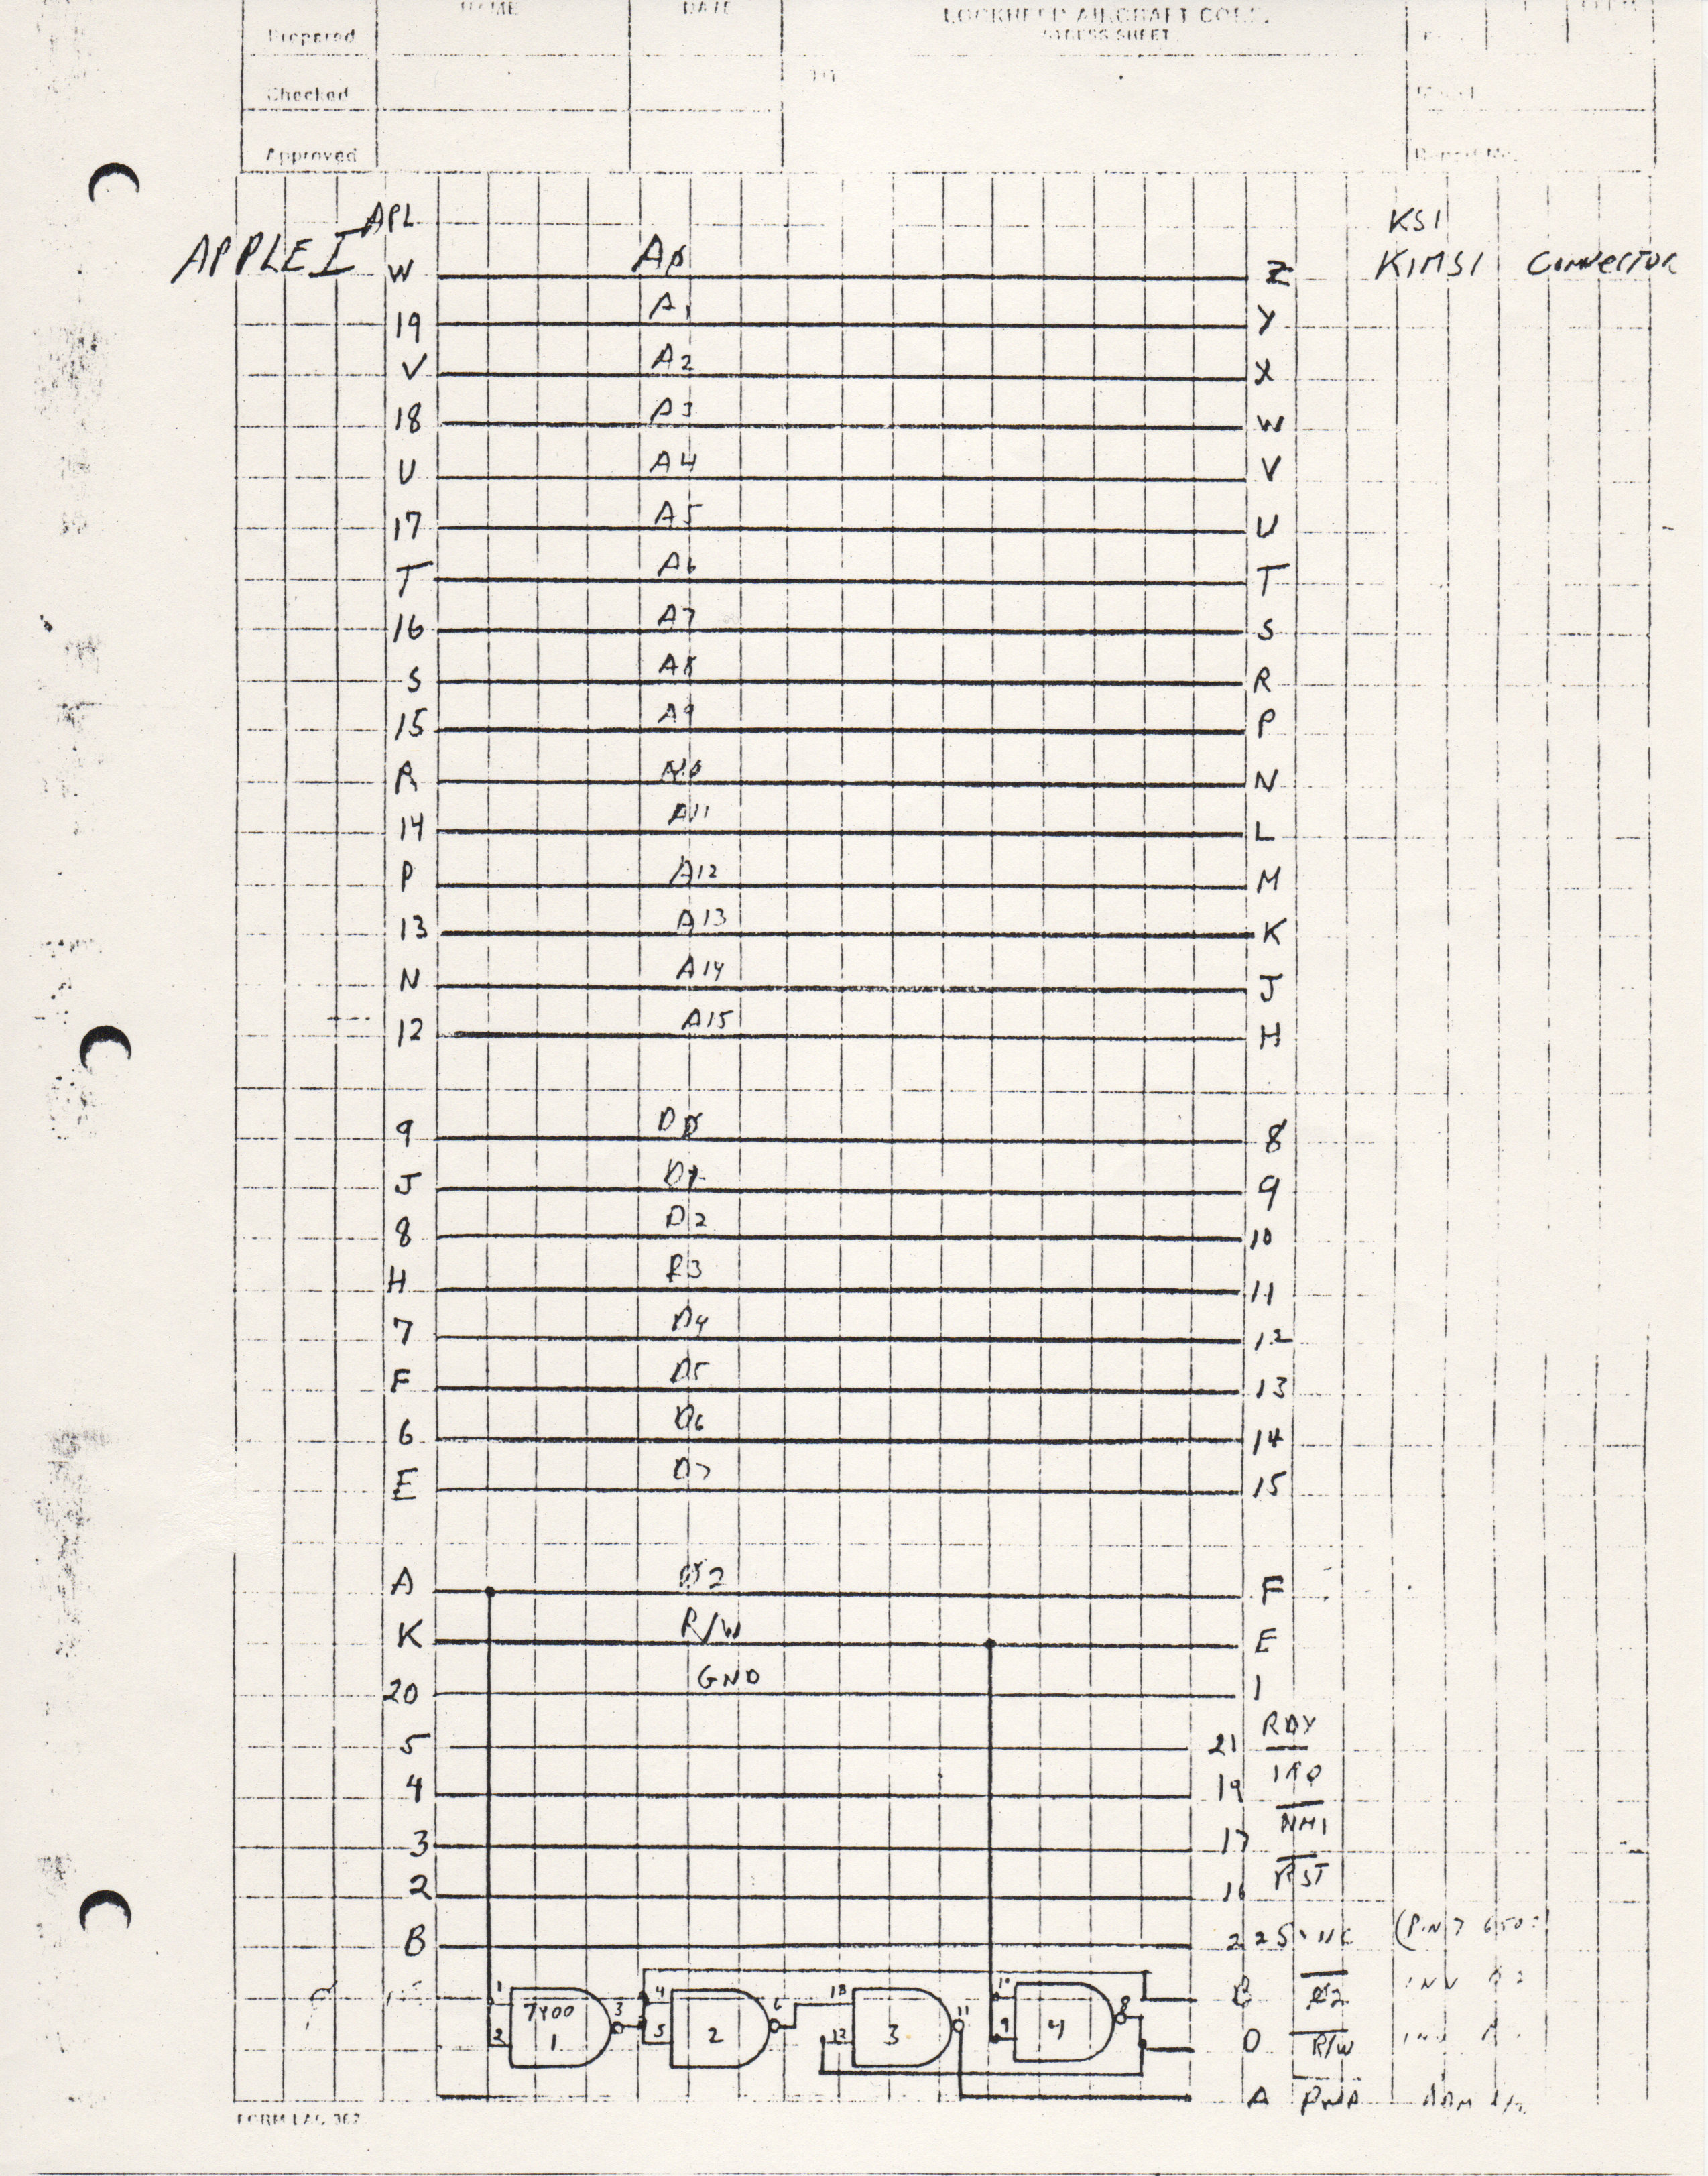 NAME DATE LOCKHEED AIRCRAFT CORP.
Prepared STRESS SHEET
Checked
Approved Report No.
APL KSI
APPLE I KIMSI CONNECTOR
W AØ Z
19 A1 Y
V A2 X
18 A3 W
U A4 V
17 A5 U
T A6 T
16 A7 S
S A8 R
15 A9 P
R N
14 A11 L
P A12 M
13 A13 K
N A14 J
12 A15 H
9 DØ 8
J D1 9
8 D2 10
H D3 11
7 D4 12
F D5 13
6 D6 14
E D7 15
A Ø2 F
K R/W E
20 GND 1
5 21 RDY
4 19 IRQ
3 17 NMI
2 16 RST
B 22 SYNC (PIN 7
B Ø2 INV Ø2
1 2 7400 1 3 4 5 2 6 13 12 3 11 10 9 4 8
D R/W INV
A
FORM LAC 367